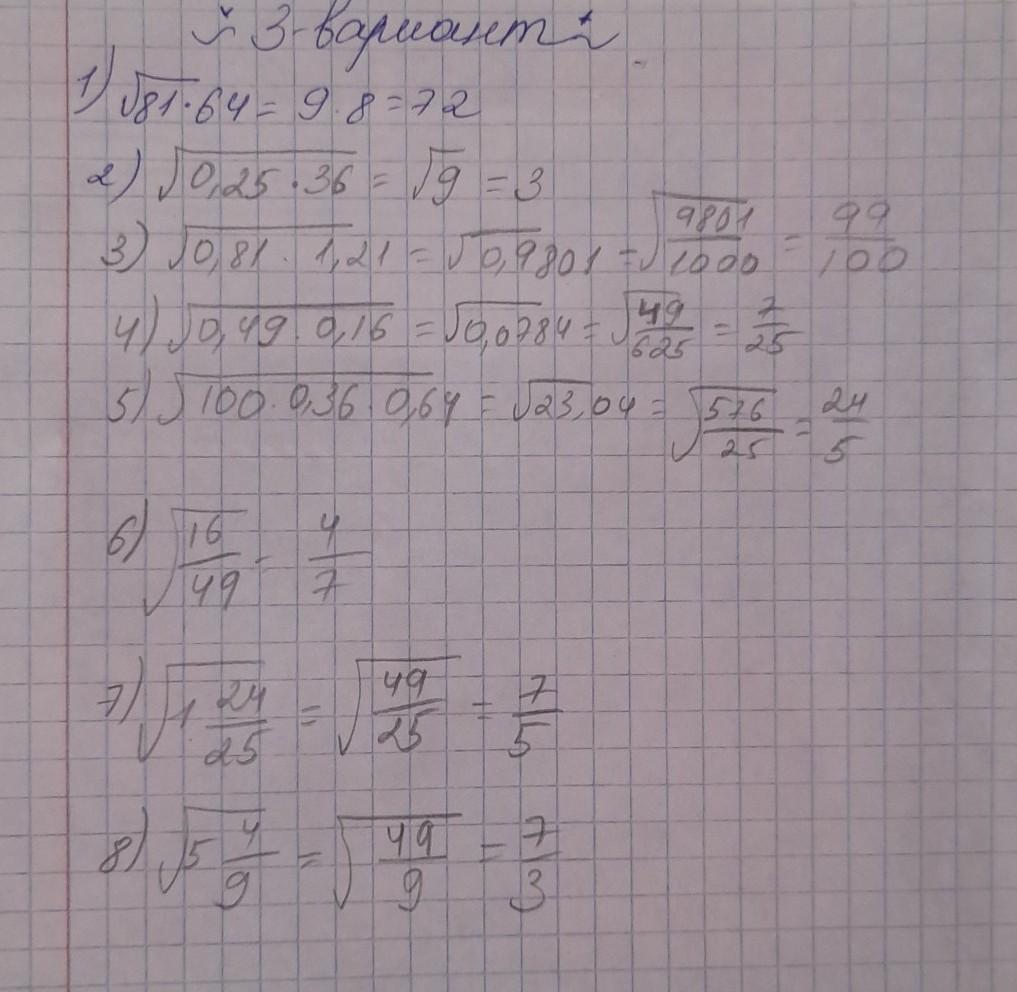 3-вариант
1) √81·64 = 9·8=72
2) √0,25·36 = √9 = 3
3) √0,81·1,21 = √0,9801 = √9801/1000 = 99/100
4) √0,49·0,16 = √0,0784 = √49/625 = 7/25
5) √100·0,36·0,64 = √23,04 = √576/25 = 24/5
6) √16/49 = 4/7
7) √1 24/25 = √49/25 = 7/5
8) √5 4/9 = √49/9 = 7/3